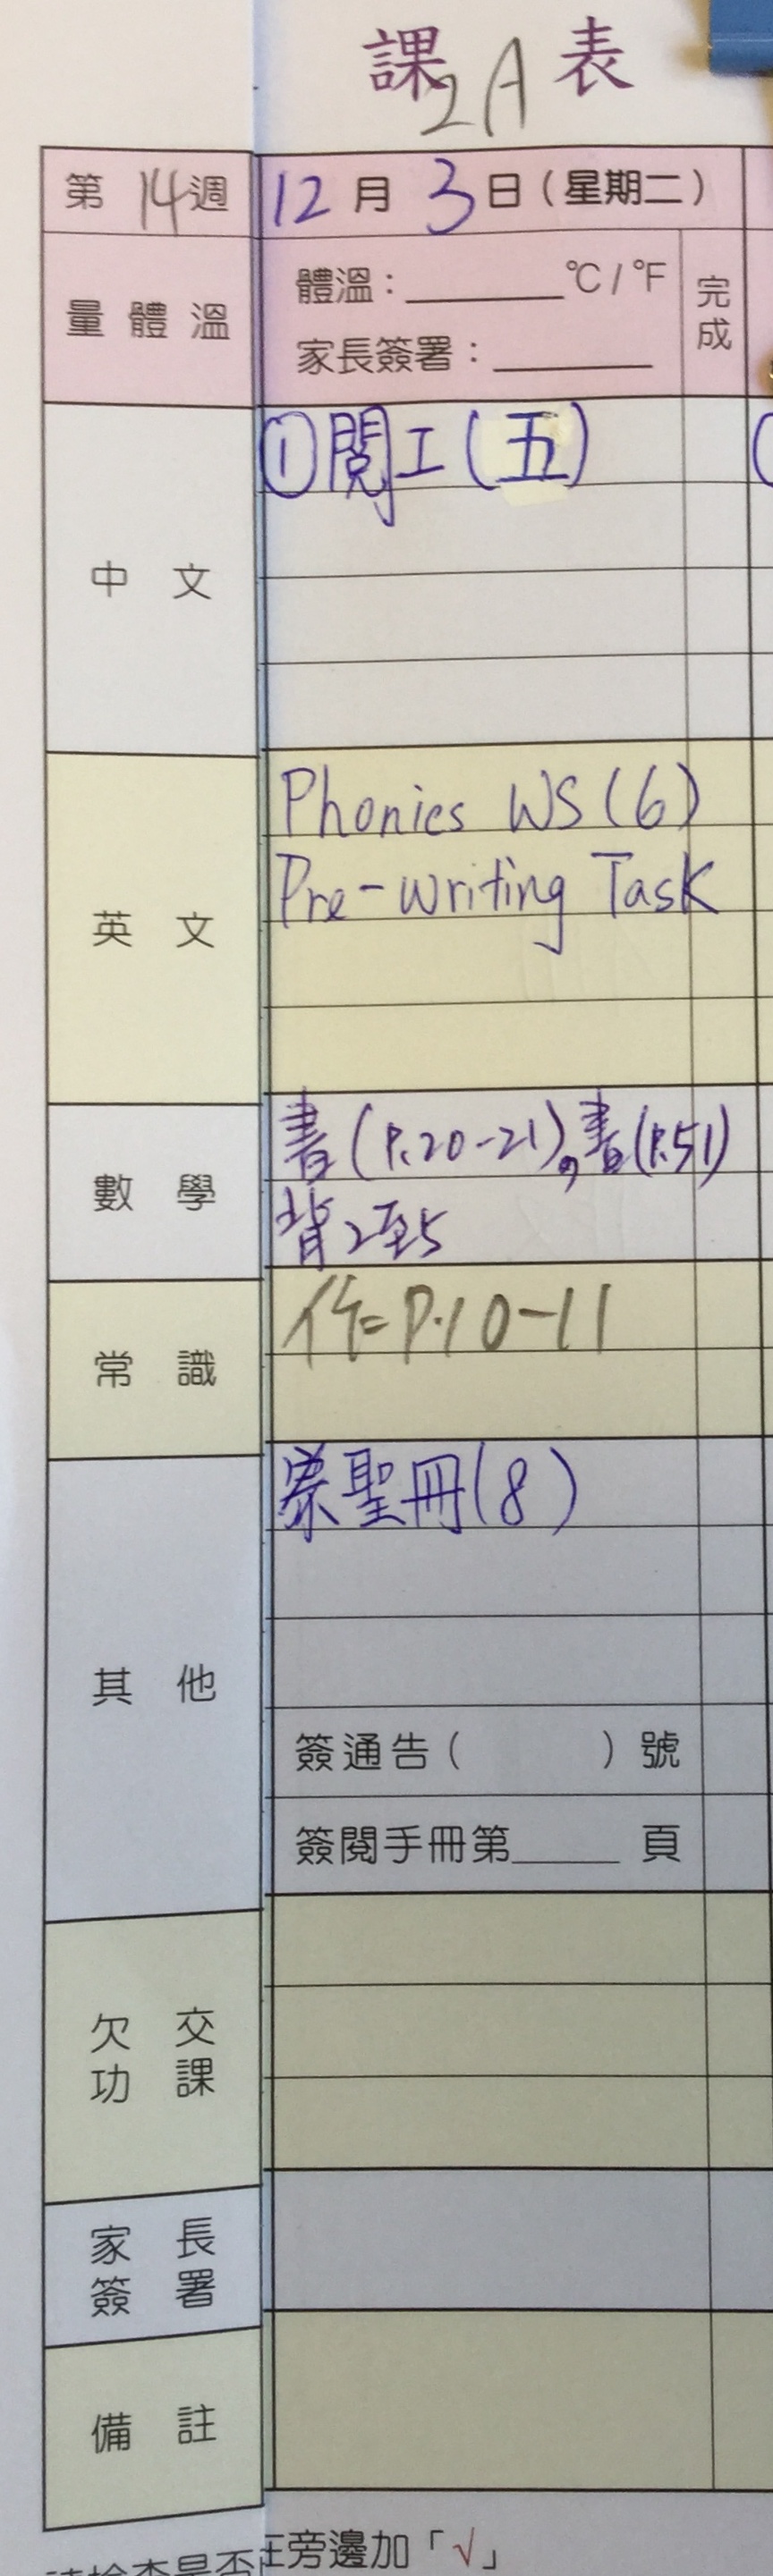 課 表
2A
第 14 週 12 月 3 日 (星期二)
量體溫 體溫: ______ °C / °F 完成
家長簽署: ______
中文 ①閱工(五)
英文 Phonics WS (6)
Pre-writing Task
數學 書(P.20-21),書(P.51)
背2至5
常識 作=P.10-11
其他 聖冊(8)
簽通告( )號
簽閱手冊第____頁
欠交功課
家長簽署
備註
旁邊加「√」